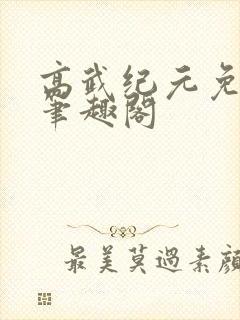 高武纪元免
笔趣阁
最美莫過素顏